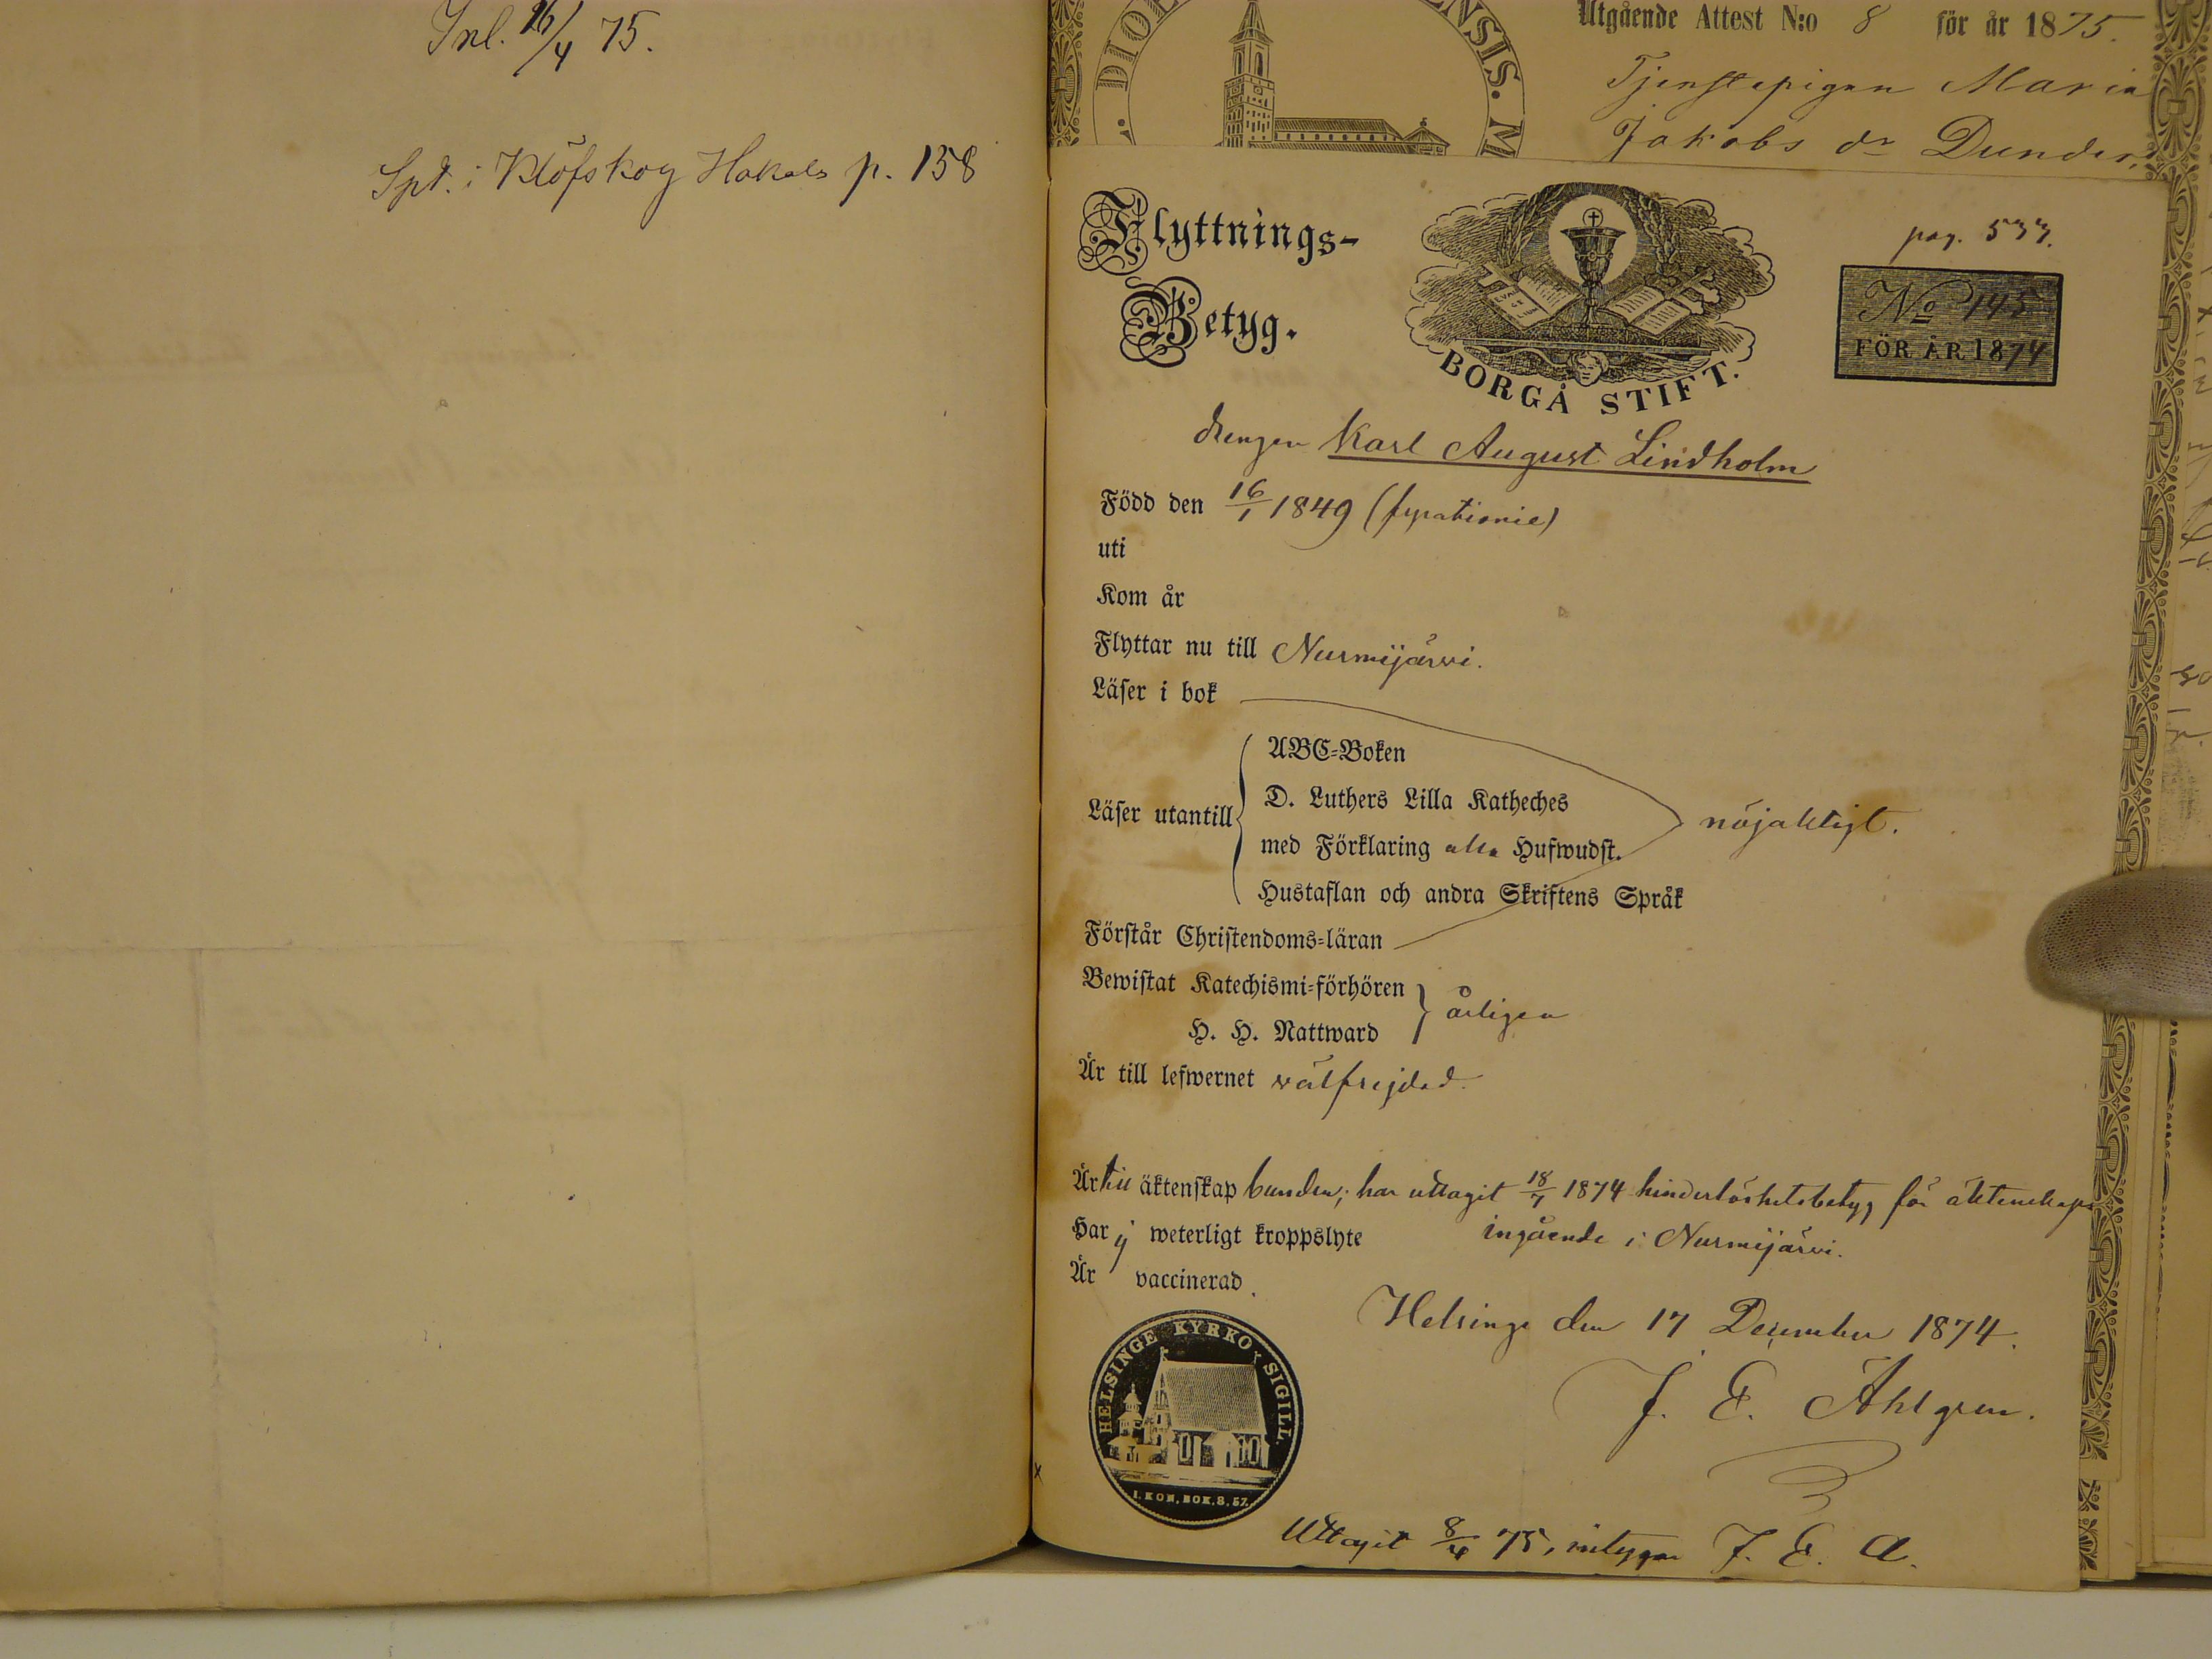 Inl. 16/4 75.
Spt. i Klöfskog Hakala p. 158
DIOE
ENSIS. M
Utgående Attest N:o 8 för år 1875.
Tjenstepigan Maria
Jakobs dr Dunder,
Flyttnings-
Betyg.
BORGÅ STIFT.
pag. 533.
No 145
FÖR ÅR 1874
drengen Karl August Lindholm
Född den 16/1 1849 (fyrationie)
uti
Kom år
Flyttar nu till Nurmijärvi.
Läser i bok
ABC-Boken
D. Luthers Lilla Katheches
Läser utantill
nöjaktigt.
med Förklaring alla Hufwudst.
Hustaflan och andra Skriftens Språk
Förstår Christendoms-läran
Bewistat Katechismi-förhören
årligen
H. H. Nattward
Är till lefwernet välfrejdad.
Är till äktenskap bunden; har uttagit 18/7 1874 hinderlöshetsbetyg för äktenskaps
Har ej weterligt kroppslyte ingående i Nurmijärvi.
Är vaccinerad.
Helsinge den 17 December 1874.
J. E. Åhlgren.
HELSINGE KYRKO SIGILL.
I. KON. BOK. 8, 57.
Uttagit 8/4 75, intygar J. E. A.